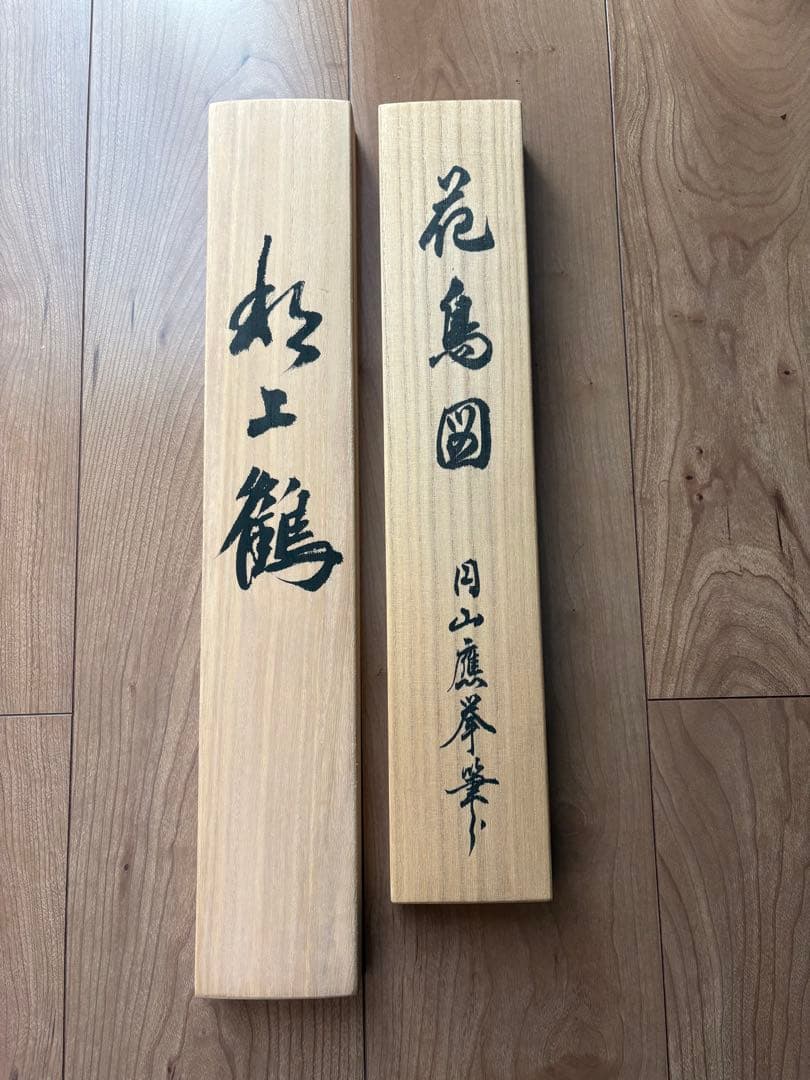 花鳥図
円山應挙筆
松上鶴